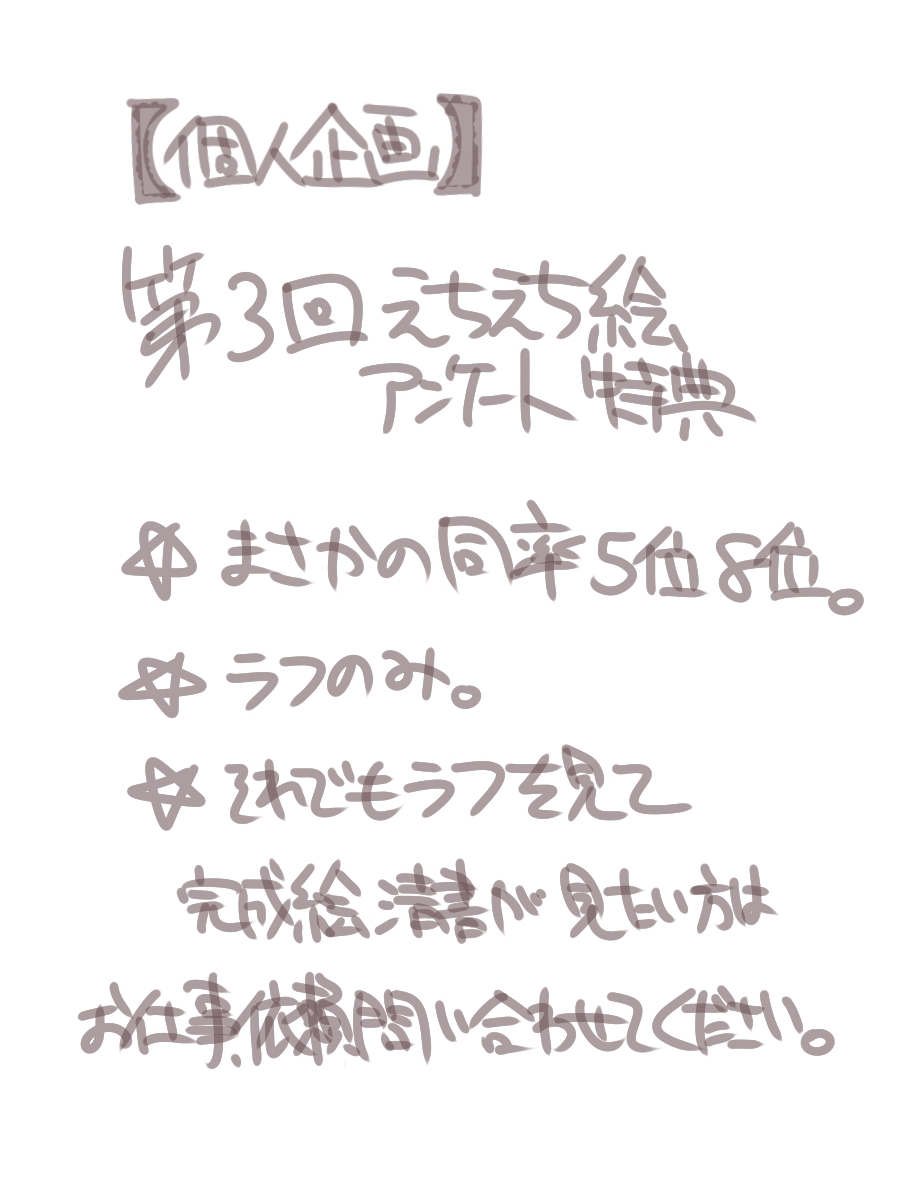 【個人企画】
第3回えちえち絵
アンケート特典
☆まさかの同率5位8位。
☆ラフのみ。
☆それでもラフを見て
完成絵清書が見たい方は
お仕事依頼問い合わせてください。